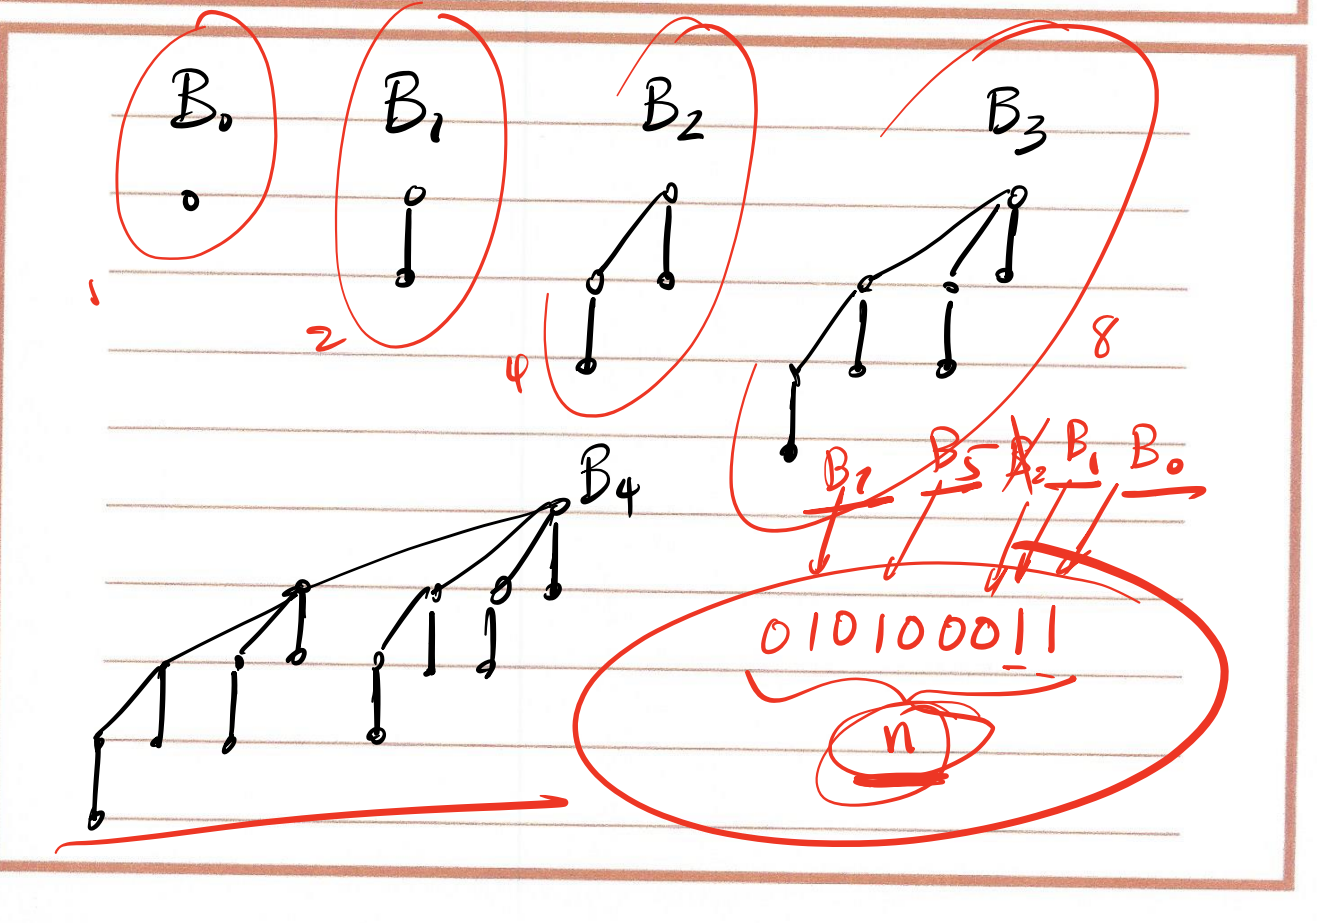 B₀ B₁ B₂ B₃
1 2 4 8
B₄
B₇ B₅ B₂ B₁ B₀
0 1 0 1 0 0 0 1 1
n